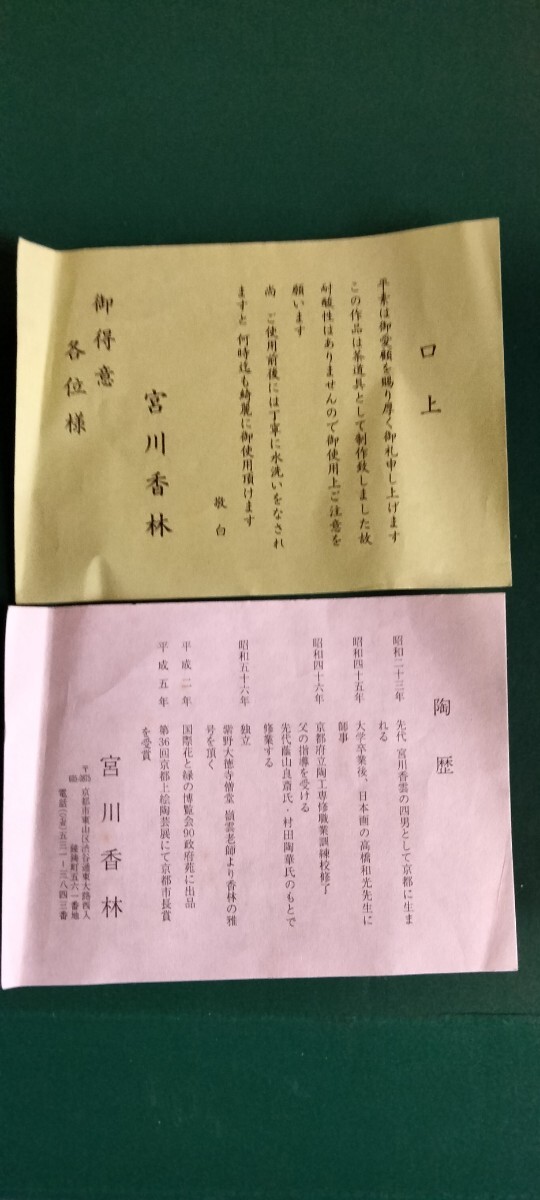 口上
平素は御愛顧を賜り厚く御礼申し上げます
この作品は茶道具として制作致しました故
耐酸性はありませんので御使用上ご注意を
願います
尚 ご使用前後には丁寧に水洗いをなされ
ますと 何時迄も綺麗に御使用頂けます
敬白
宮川香林
御得意
各位様
陶歴
昭和二十三年 先代 宮川香雲の四男として京都に生ま
れる
昭和四十五年 大学卒業後、日本画の高橋和光先生に
師事
昭和四十六年 京都府立陶工専修職業訓練校修了
父の指導を受ける
先代蔭山良斎氏・村田陶華氏のもとで
修業する
昭和五十六年 独立
紫野大徳寺僧堂 嶺雲老師より香林の雅
号を頂く
平成二年 国際花と緑の博覧会90政府苑に出品
平成五年 第36回京都上絵陶芸展にて京都市長賞
を受賞
宮川香林
京都市東山区渋谷通東大路西入
鐘鋳町五六一番地
電話(〇七五)五三一-三八四三番